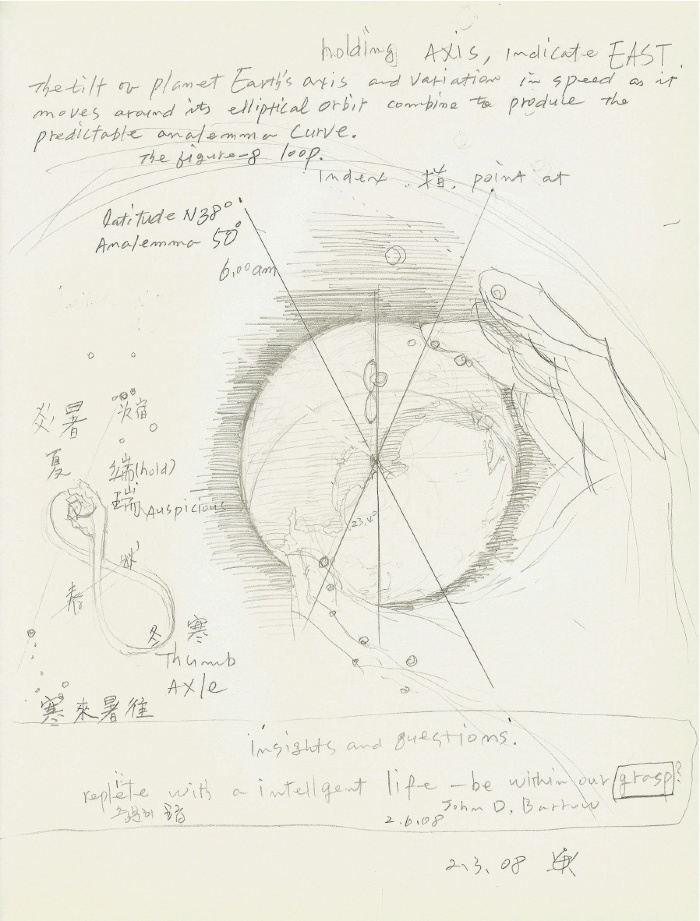 holding AXIS, indicate EAST.
The tilt of planet Earth's axis and variation in speed as it
moves around its elliptical orbit combine to produce the
predictable analemma curve.
The figure-8 loop.
Index. 指. point at
Latitude N38°
Analemma 50°
6.00am
炎暑
夏
端(hold)
瑞 Auspicious
23.4°
秋
春
冬 寒
Thumb
AXLE
寒來暑往
insights and questions.
replete with a intellgent life – be within our grasp?
John D. Barrow
2.6.08
2.3.08